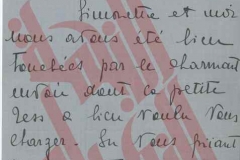 Simonette et moi
nous avons été bien
touchées par le charmant
envoi dont ce petite
a bien voulu vous
charger. En vous priant